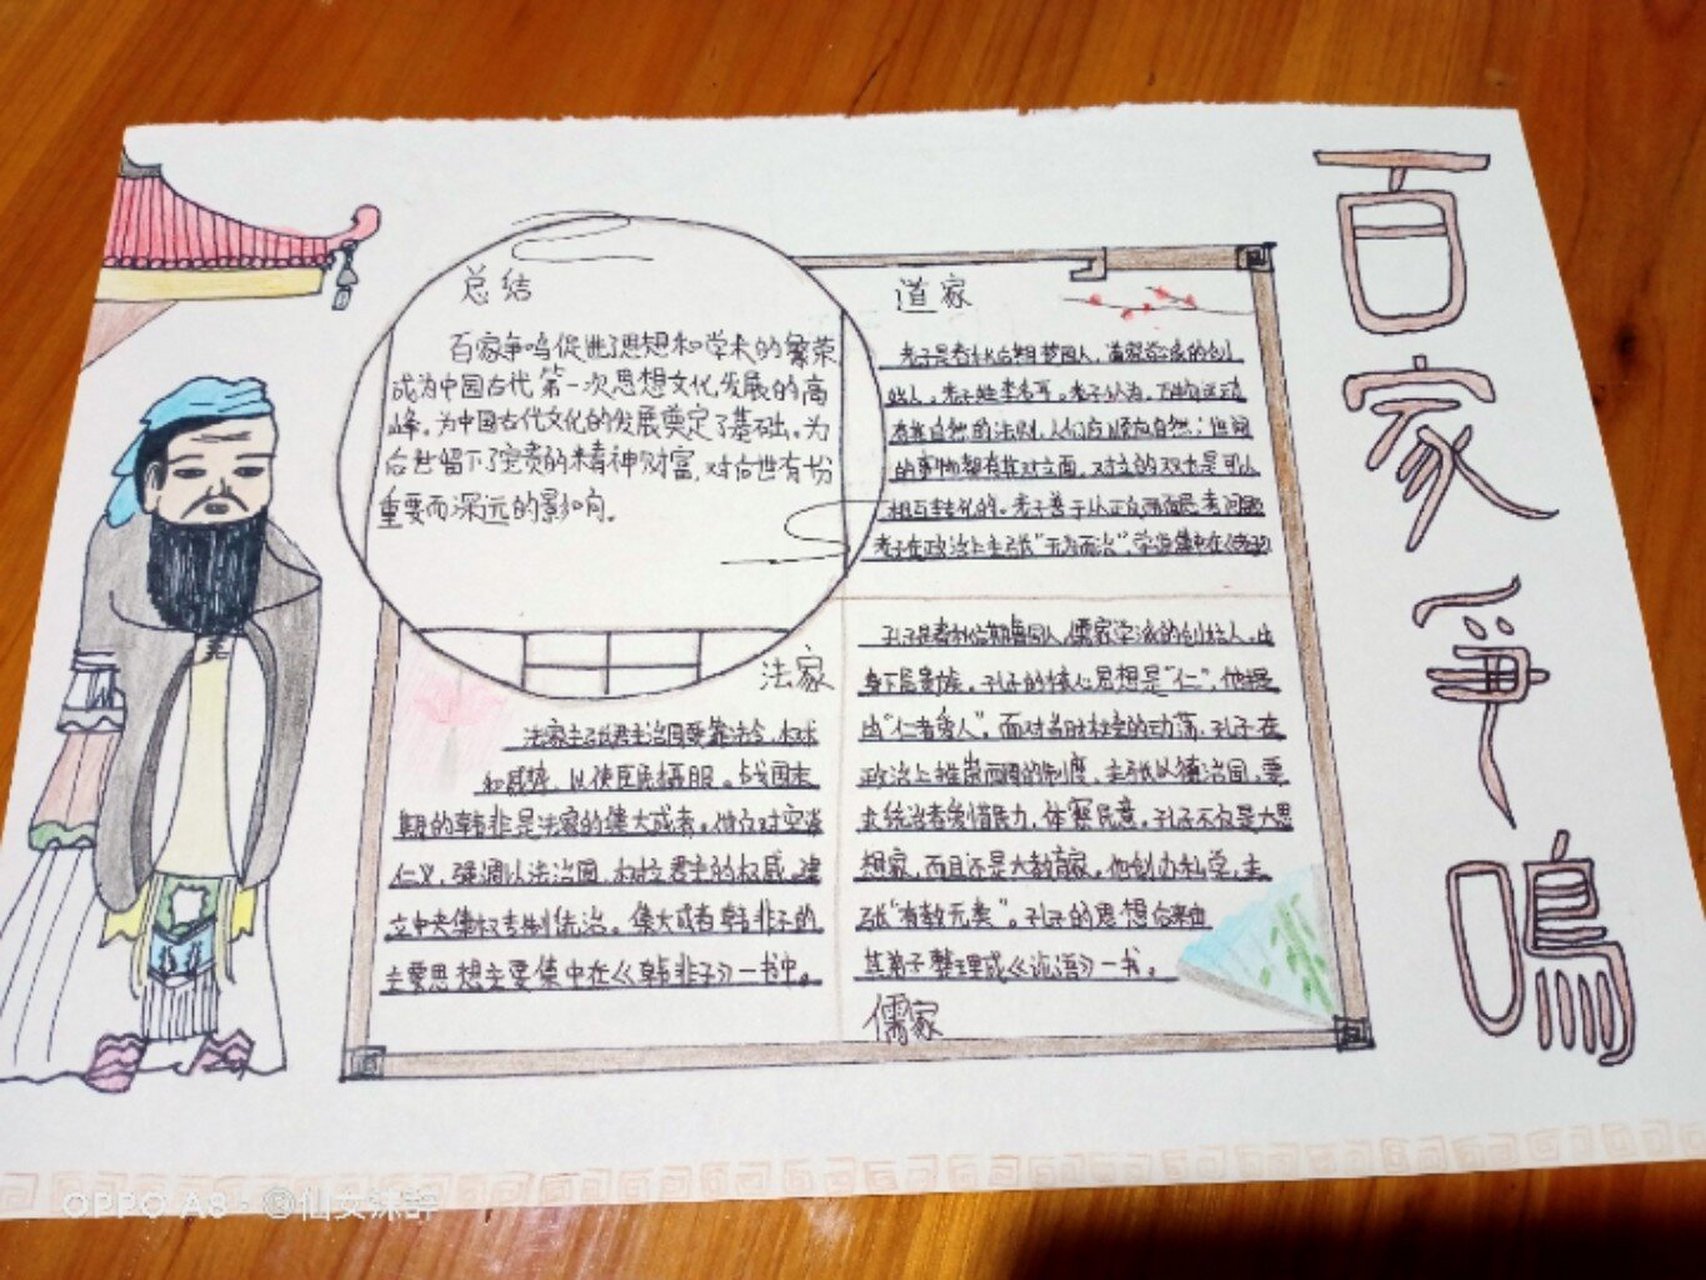 百家争鸣
总结
百家争鸣促进了思想和学术的繁荣
成为中国古代第一次思想文化发展的高
峰。为中国古代文化的发展奠定了基础。为
后世留下了宝贵的精神财富,对后世有份
重要而深远的影响。
道家
老子是春秋后期楚国人,道家学派的创
始人。老子姓李名耳。老子认为,万物的运动
有其自然的法则,人们应顺应自然;世间
的事物都有其对立面,对立的双方是可以
相互转化的。老子善于从正反两面思考问题
老子在政治上主张“无为而治”,学说集中在《老子》
法家
法家主张君主治国要靠法令、权术
和威势,以使臣民慑服。战国末
期的韩非是法家的集大成者。他反对空谈
仁义,强调以法治国,树立君主的权威。建
立中央集权专制统治。集大成者韩非子的
主要思想主要集中在《韩非子》一书中。
孔子是春秋后期鲁国人,儒家学派的创始人。出
身下层贵族。孔子的核心思想是“仁”,他提
出“仁者爱人”。面对当时社会的动荡,孔子在
政治上推崇西周的制度,主张以德治国,要
求统治者爱惜民力,体察民意。孔子不仅是大思
想家,而且还是大教育家。他创办私学,主
张“有教无类”。孔子的思想后来由
其弟子整理成《论语》一书。
儒家
OPPO A8 · @仙女妹辞